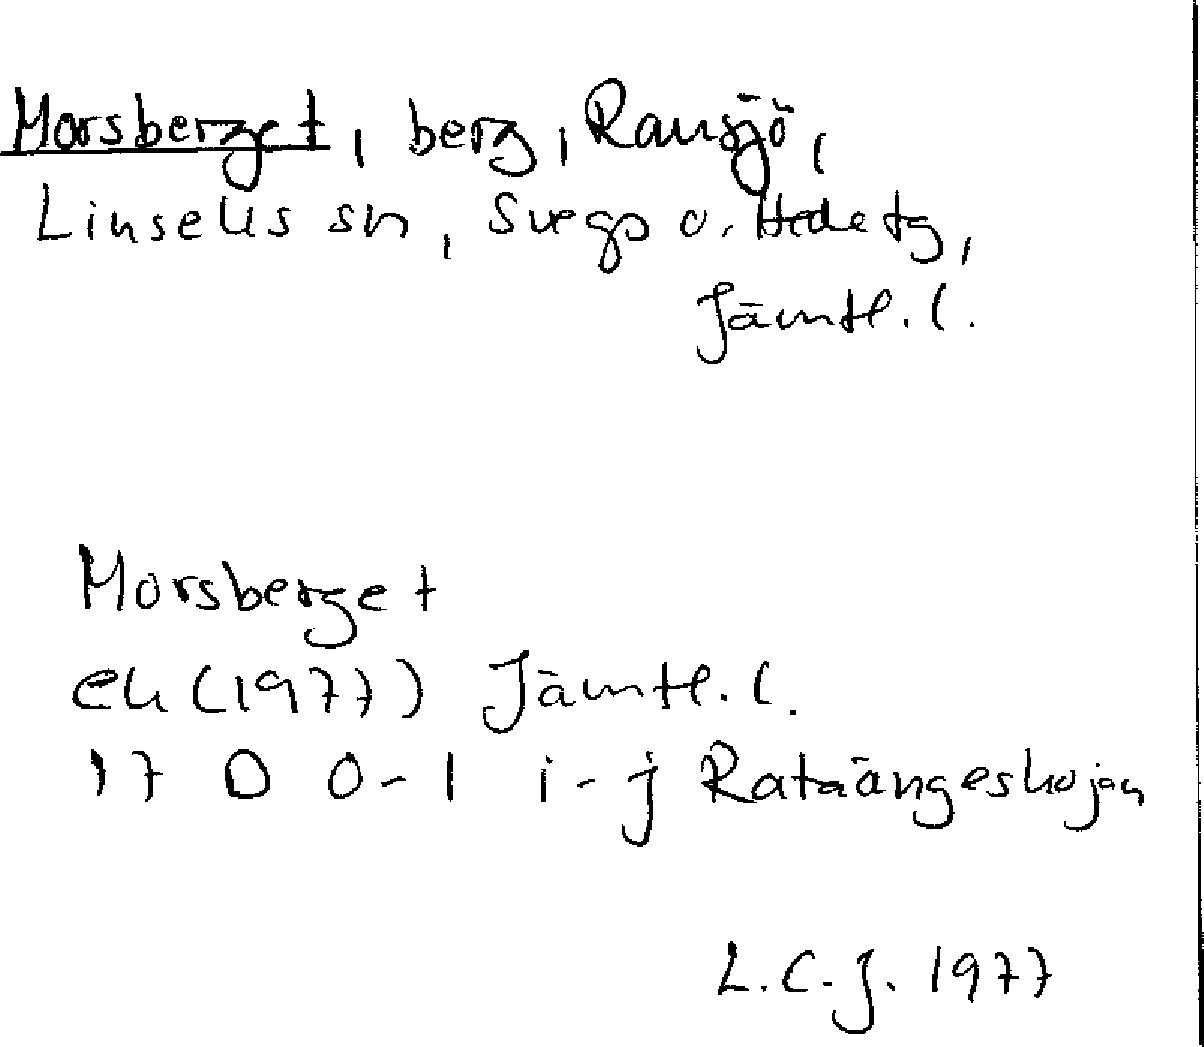 Morsberget, berg, Ransjö,
Linsells sn, Svegs o. Hede tg,
Jämtl. l.
Morsberget
ek (1977) Jämtl. l.
17 D 0-1 i-j Rataängeskojan
L.C.J. 1977